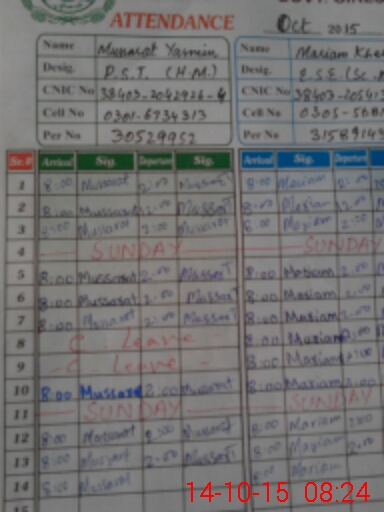 ATTENDANCE Oct 2015
Name Mussarat Yasmin Name Mariam
Desig. P.S.T. (H.M.) Desig.
CNIC No 38403-2042926-4 CNIC No
Cell No 0301-6734313 Cell No 0305-
Per No 30529952 Per No
Sr.# Arrival Sig. Departure Sig. Arrival Sig. Departure
1 8:00 Mussarat 2:00 Mussarat 8:00 Mariam 2:00
2 8:00 Mussarat 2:00 Mussarat 8:00 Mariam 2:00
3 8:00 Mussarat 2:00 Mussarat 8:00 Mariam 2:00
4 SUNDAY SUNDAY
5 8:00 Mussarat 2:00 Mussarat 8:00 Mariam 2:00
6 8:00 Mussarat 2:00 Mussarat 8:00 Mariam 2:00
7 8:00 Mussarat 2:00 Mussarat 8:00 Mariam 2:00
8 C Leave 8:00 Mariam 2:00
9 C Leave - 8:00 Mariam 2:00
10 8:00 Mussarat 2:00 Mussarat 8:00 Mariam 2:00
11 SUNDAY SUNDAY
12 8:00 Mussarat 2:00 Mussarat 8:00 Mariam 2:00
13 8:00 Mussarat 2:00 Mussarat 8:00 Mariam 2:00
14 8:00 Mussarat 8:00 Mariam
14-10-15 08:24